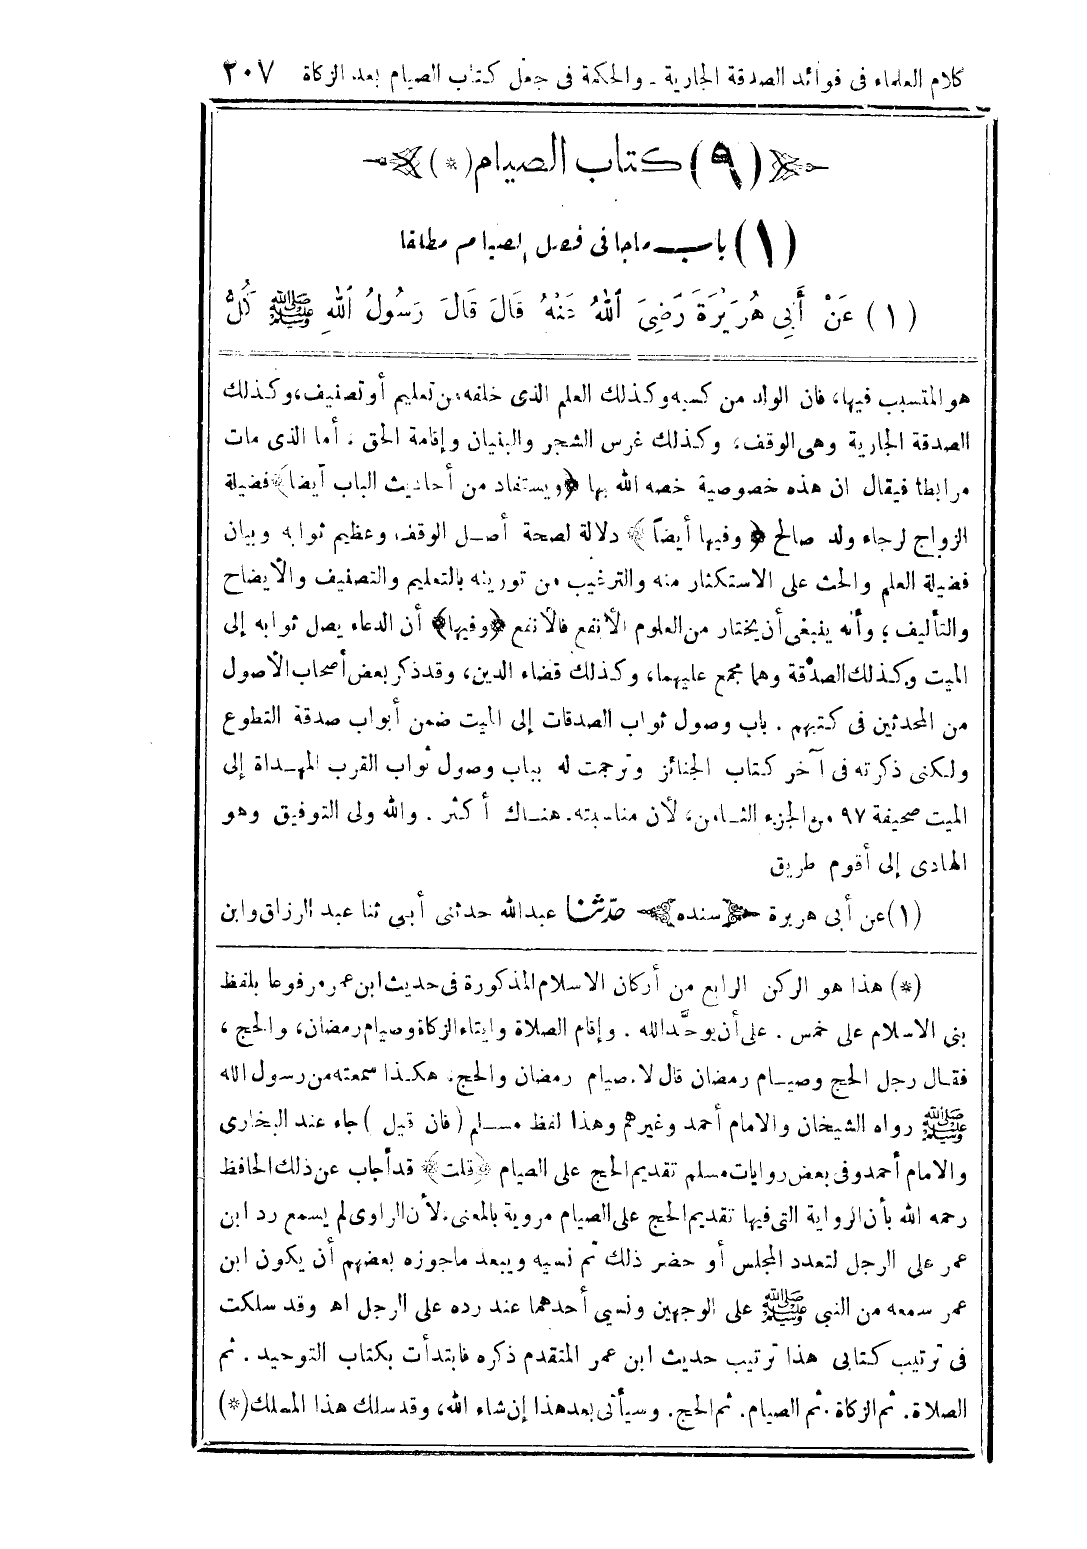 كلام العلماء فى فوائد الصدقة الجارية - والحكمة فى جعل كتاب الصيام بعد الزكاة ٢٠٧
(٩) كتاب الصيام (*)
(١) باب ماجا فى فضل الصيام مطلقا
(١) عَنْ أَبِي هُرَيْرَةَ رَضِيَ اللهُ عَنْهُ قَالَ قَالَ رَسُولُ اللهِ ﷺ كُلُّ
هو المتسبب فيها، فان الولد من كسبه وكذلك العلم الذى خلفه من تعليم أو تصنيف، وكذلك
الصدقة الجارية وهى الوقف، وكذلك غرس الشجر والبنيان وإقامة الحق . أما الذى مات
مرابطا فيقال ان هذه خصوصية خصه الله بها ﴿ويستفاد من أحاديث الباب أيضا﴾ فضيلة
الزواج لرجاء ولد صالح ﴿وفيها أيضاً﴾ دلالة لصحة أصل الوقف، وعظيم ثوابه وبيان
فضيلة العلم والحث على الاستكثار منه والترغيب من توريثه بالتعليم والتصنيف والأيضاح
والتأليف؛ وأنه ينبغى أن يختار من العلوم الأنفع فالأنفع ﴿وفيها﴾ أن الدعاء يصل ثوابه إلى
الميت وكذلك الصدقة وهما مجمع عليهما، وكذلك قضاء الدين، وقد ذكر بعض أصحاب الأصول
من المحدثين فى كتبهم . باب وصول ثواب الصدقات إلى الميت ضمن أبواب صدقة التطوع
ولكنى ذكرته فى آخر كتاب الجنائز وترجمت له بباب وصول ثواب القرب المهداة إلى
الميت صحيفة ٩٧ من الجزء الثامن، لأن مناسبته هناك أكثر . والله ولى التوفيق وهو
الهادى إلى أقوم طريق
(١) عن أبى هريرة ﴿سنده﴾ حدّثنا عبد الله حدثنى أبى ثنا عبد الرزاق وابن
(*) هذا هو الركن الرابع من أركان الاسلام المذكورة فى حديث ابن عمر مرفوعا بلفظ
بنى الاسلام على خمس . على أن يوحَّد الله . وإقام الصلاة وايتاء الزكاة وصيام رمضان، والحج ،
فقال رجل الحج وصيام رمضان قال لا. صيام رمضان والحج. هكذا سمعته من رسول الله
ﷺ رواه الشيخان والامام أحمد وغيرهم وهذا لفظ مسلم (فان قيل) جاء عند البخارى
والامام أحمد وفى بعض روايات مسلم تقديم الحج على الصيام ﴿قلت﴾ قد أجاب عن ذلك الحافظ
رحمه الله بأن الرواية التى فيها تقديم الحج على الصيام مروية بالمعنى. لأن الراوى لم يسمع رد ابن
عمر على الرجل لتعدد المجلس أو حضر ذلك ثم نسيه ويبعد ما جوزه بعضهم أن يكون ابن
عمر سمعه من النبى ﷺ على الوجهين ونسى أحدهما عند رده على الرجل اه وقد سلكت
فى ترتيب كتابى هذا ترتيب حديث ابن عمر المتقدم ذكره فابتدأت بكتاب التوحيد . ثم
الصلاة. ثم الزكاة. ثم الصيام. ثم الحج. وسيأتى بعد هذا إن شاء الله، وقد سلك هذا المسلك (*)